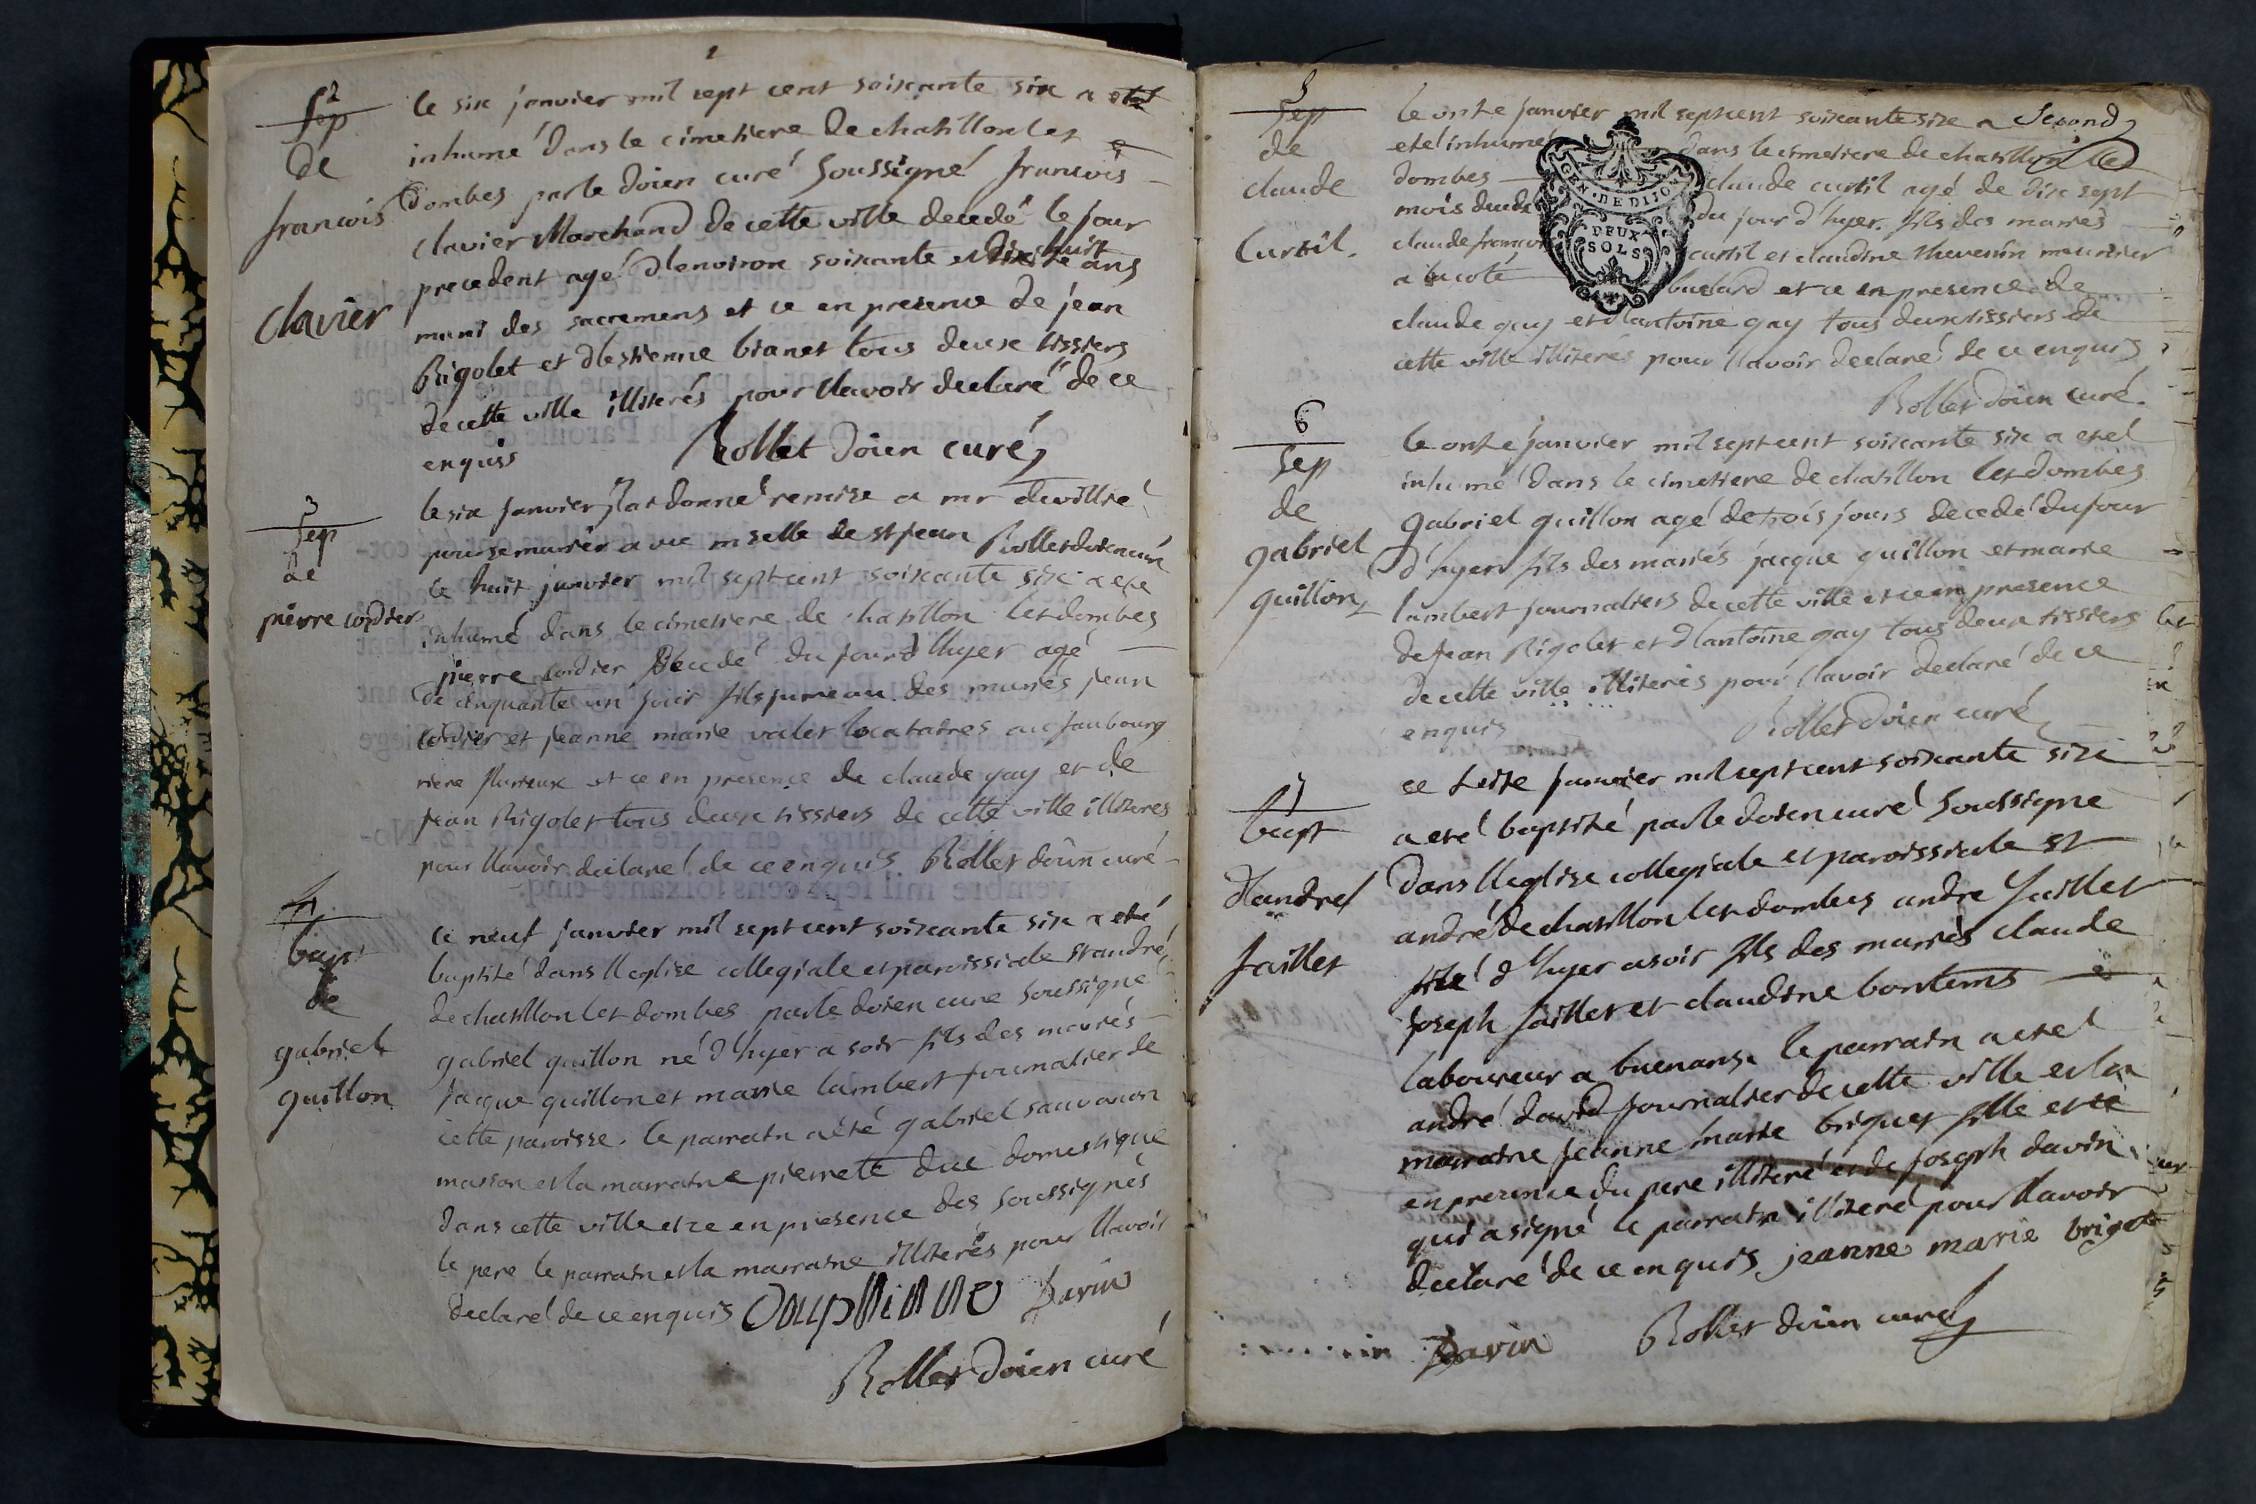 2
Sep
de
francois
clavier
le six janvier mil sept cent soixante six a eté
inhumé dans le cimetiere de chatillon les
Dombes par le doien curé soussigné francois
clavier Marchand de cette ville decedé le jour
precedent agé d'environ soixante et dix huit ans
muni des sacremens et ce en presence de jean
Rigolet et d'estienne bianet tous deux tissiers
de cette ville illiterés pour l'avoir declaré de ce
enquis
Rollet doien curé
3
Sep
de
pierre cordier
le six janvier j'ai donné remise a mr
pour se marier avec mselle de st jean Rollet doien curé
le huit janvier mil sept cent soixante six a eté
inhumé dans le cimetiere de chatillon les dombes
pierre cordier decedé du jour d'hyer agé
de cinquante un jour fils jumeau des mariés jean
cordier et jeanne marie valet locataires au faubourg
et ce en presence de claude gay et de
jean Rigolet tous deux tissiers de cette ville illiteres
pour l'avoir declaré de ce enquis Rollet doien curé
4
bapt
de
gabriel
guillon
le neuf janvier mil sept cent soixante six a eté
baptisé dans l'eglise collegiale et paroissiale st andré
de chatillon les dombes par le doien curé soussigné
gabriel guillon né d'hyer a soir fils des mariés
jacque guillon et marie lambert journalier de
cette paroisse. le parrain a été gabriel sauvanon
masson et la marraine pierrete due domestique
dans cette ville et ce en presence des soussignés
le pere le parrain et la marraine illiterés pour l'avoir
declaré de ce enquis Dauphinne Davin
Rollet doien curé
5
Sep
de
claude
Curtil.
le onze janvier mil sept cent soixante six a Second
eté inhumé dans le cimetiere de chatillon les
dombes claude curtil agé de dix sept
mois decedé du jour d'hyer. fils des mariés
claude francois curtil et claudine thevenin meunier
a la coté et ce en presence de
claude gay et d'antoine gay tous deux tissiers de
cette ville illiterés pour l'avoir declaré de ce enquis
Rollet doien curé.
GEN. DE DIJON
DEUX
SOLS
6
Sep
de
gabriel
guillon
le onze janvier mil sept cent soixante six a eté
inhumé dans le cimetiere de chatillon les dombes
gabriel guillon agé de trois jours decedé du jour
d'hyer fils des mariés jacque guillon et marie
lambert journaliers de cette ville et ce en presence
de jean Rigolet et d'antoine gay tous deux tissiers
de cette ville illiterés pour l'avoir declaré de ce
enquis
Rollet doien curé
7
bapt
d'andré
jaillet
ce seize janvier mil sept cent soixante six
a eté baptisé par le doien curé soussigné
dans l'eglise collegiale et paroissiale st
andré de chatillon les dombes andre jaillet
né d'hyer a soir fils des mariés claude
joseph jaillet et claudine bontems
laboureur a buenans. le parrain a eté
andré david journalier de cette ville et la
marraine jeanne marie briquet fille et ce
en presence du pere illiteré et de joseph davin
qui a signé le parrain illiteré pour l'avoir
declaré de ce enquis jeanne marie brigete
Davin Rollet doien curé